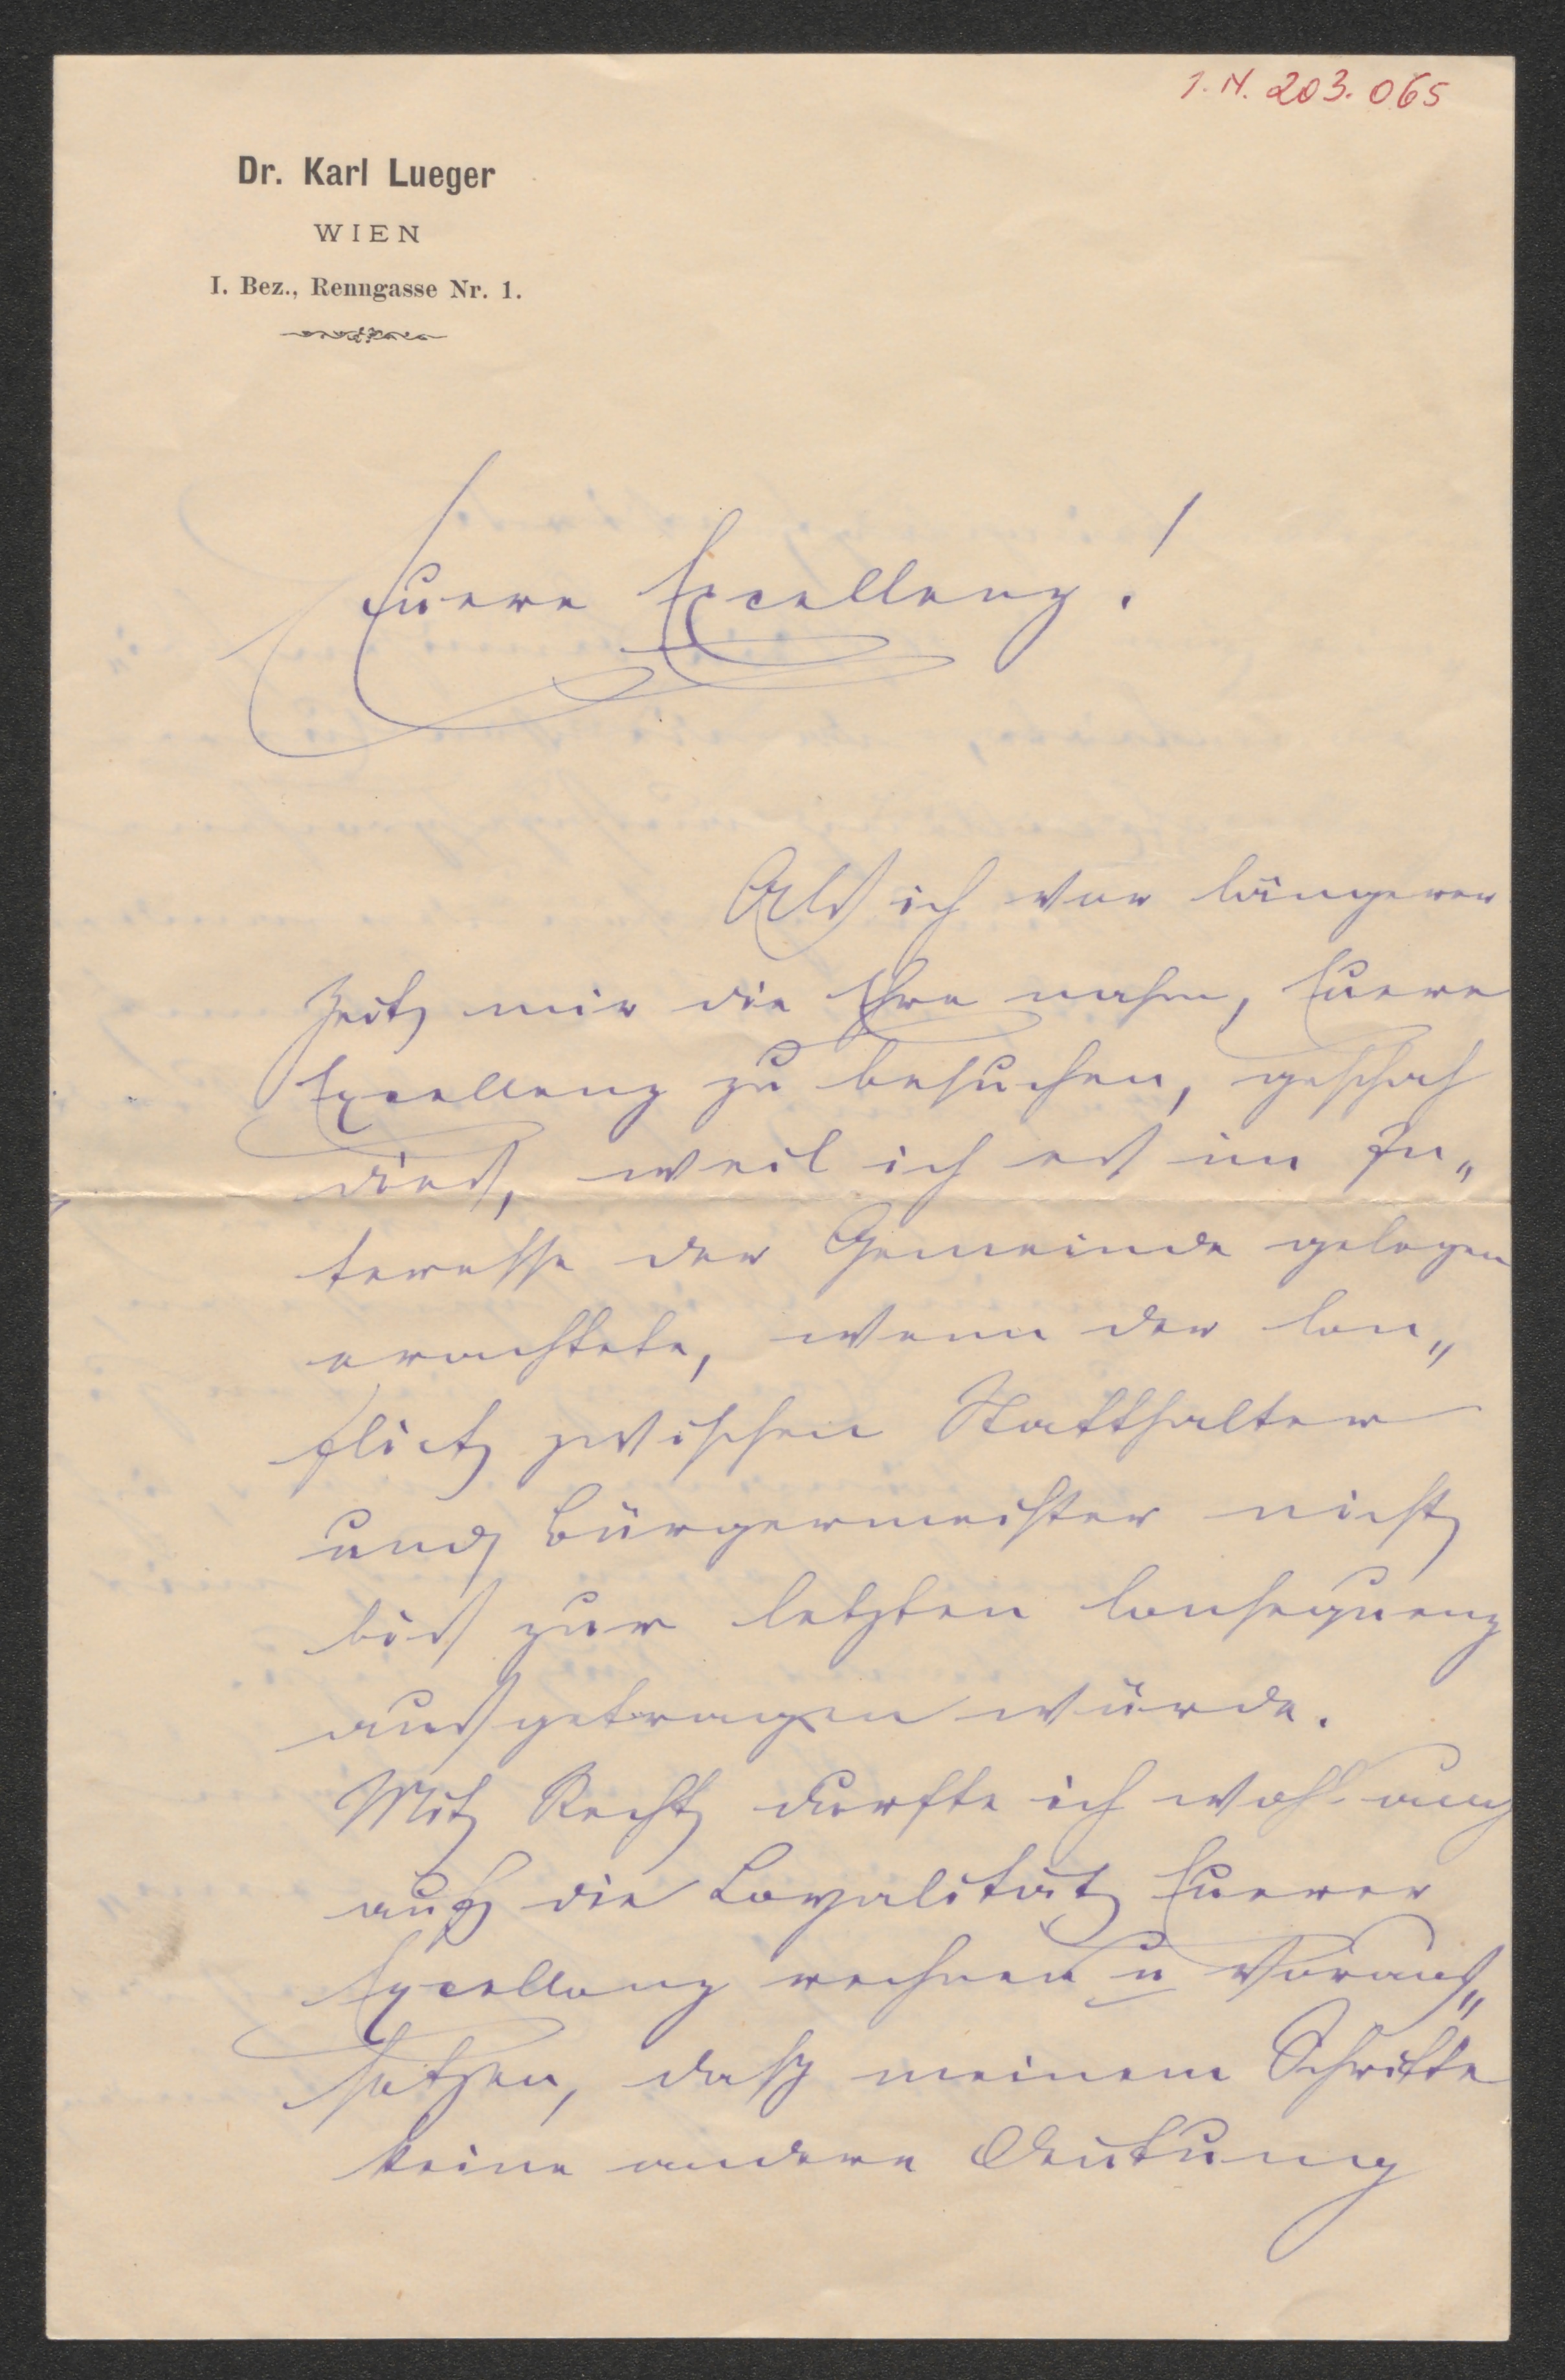 I. N. 203.065
Dr. Karl Lueger
WIEN
I. Bez., Renngasse Nr. 1.
Euere Excellenz!
Als ich vor längerer
Zeit mir die Ehre nahm, Euere
Excellenz zu besuchen, geschah
dies, weil ich es im In„
teresse der Gemeinde gelegen
erachtete, wenn der Con„
flict zwischen Statthalter
und Bürgermeister nicht
bis zur letzten Consequenz
ausgetragen würde.
Mit Recht durfte ich wohl auch
auf die Loyalität Euerer
Excellenz rechnen u voraus„
setzen, daß meinem Schritte
keine andere Deutung